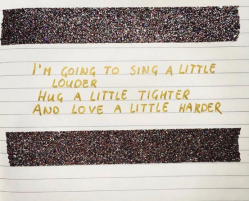 I'M GOING TO SING A LITTLE
LOUDER
HUG A LITTLE TIGHTER
AND LOVE A LITTLE HARDER